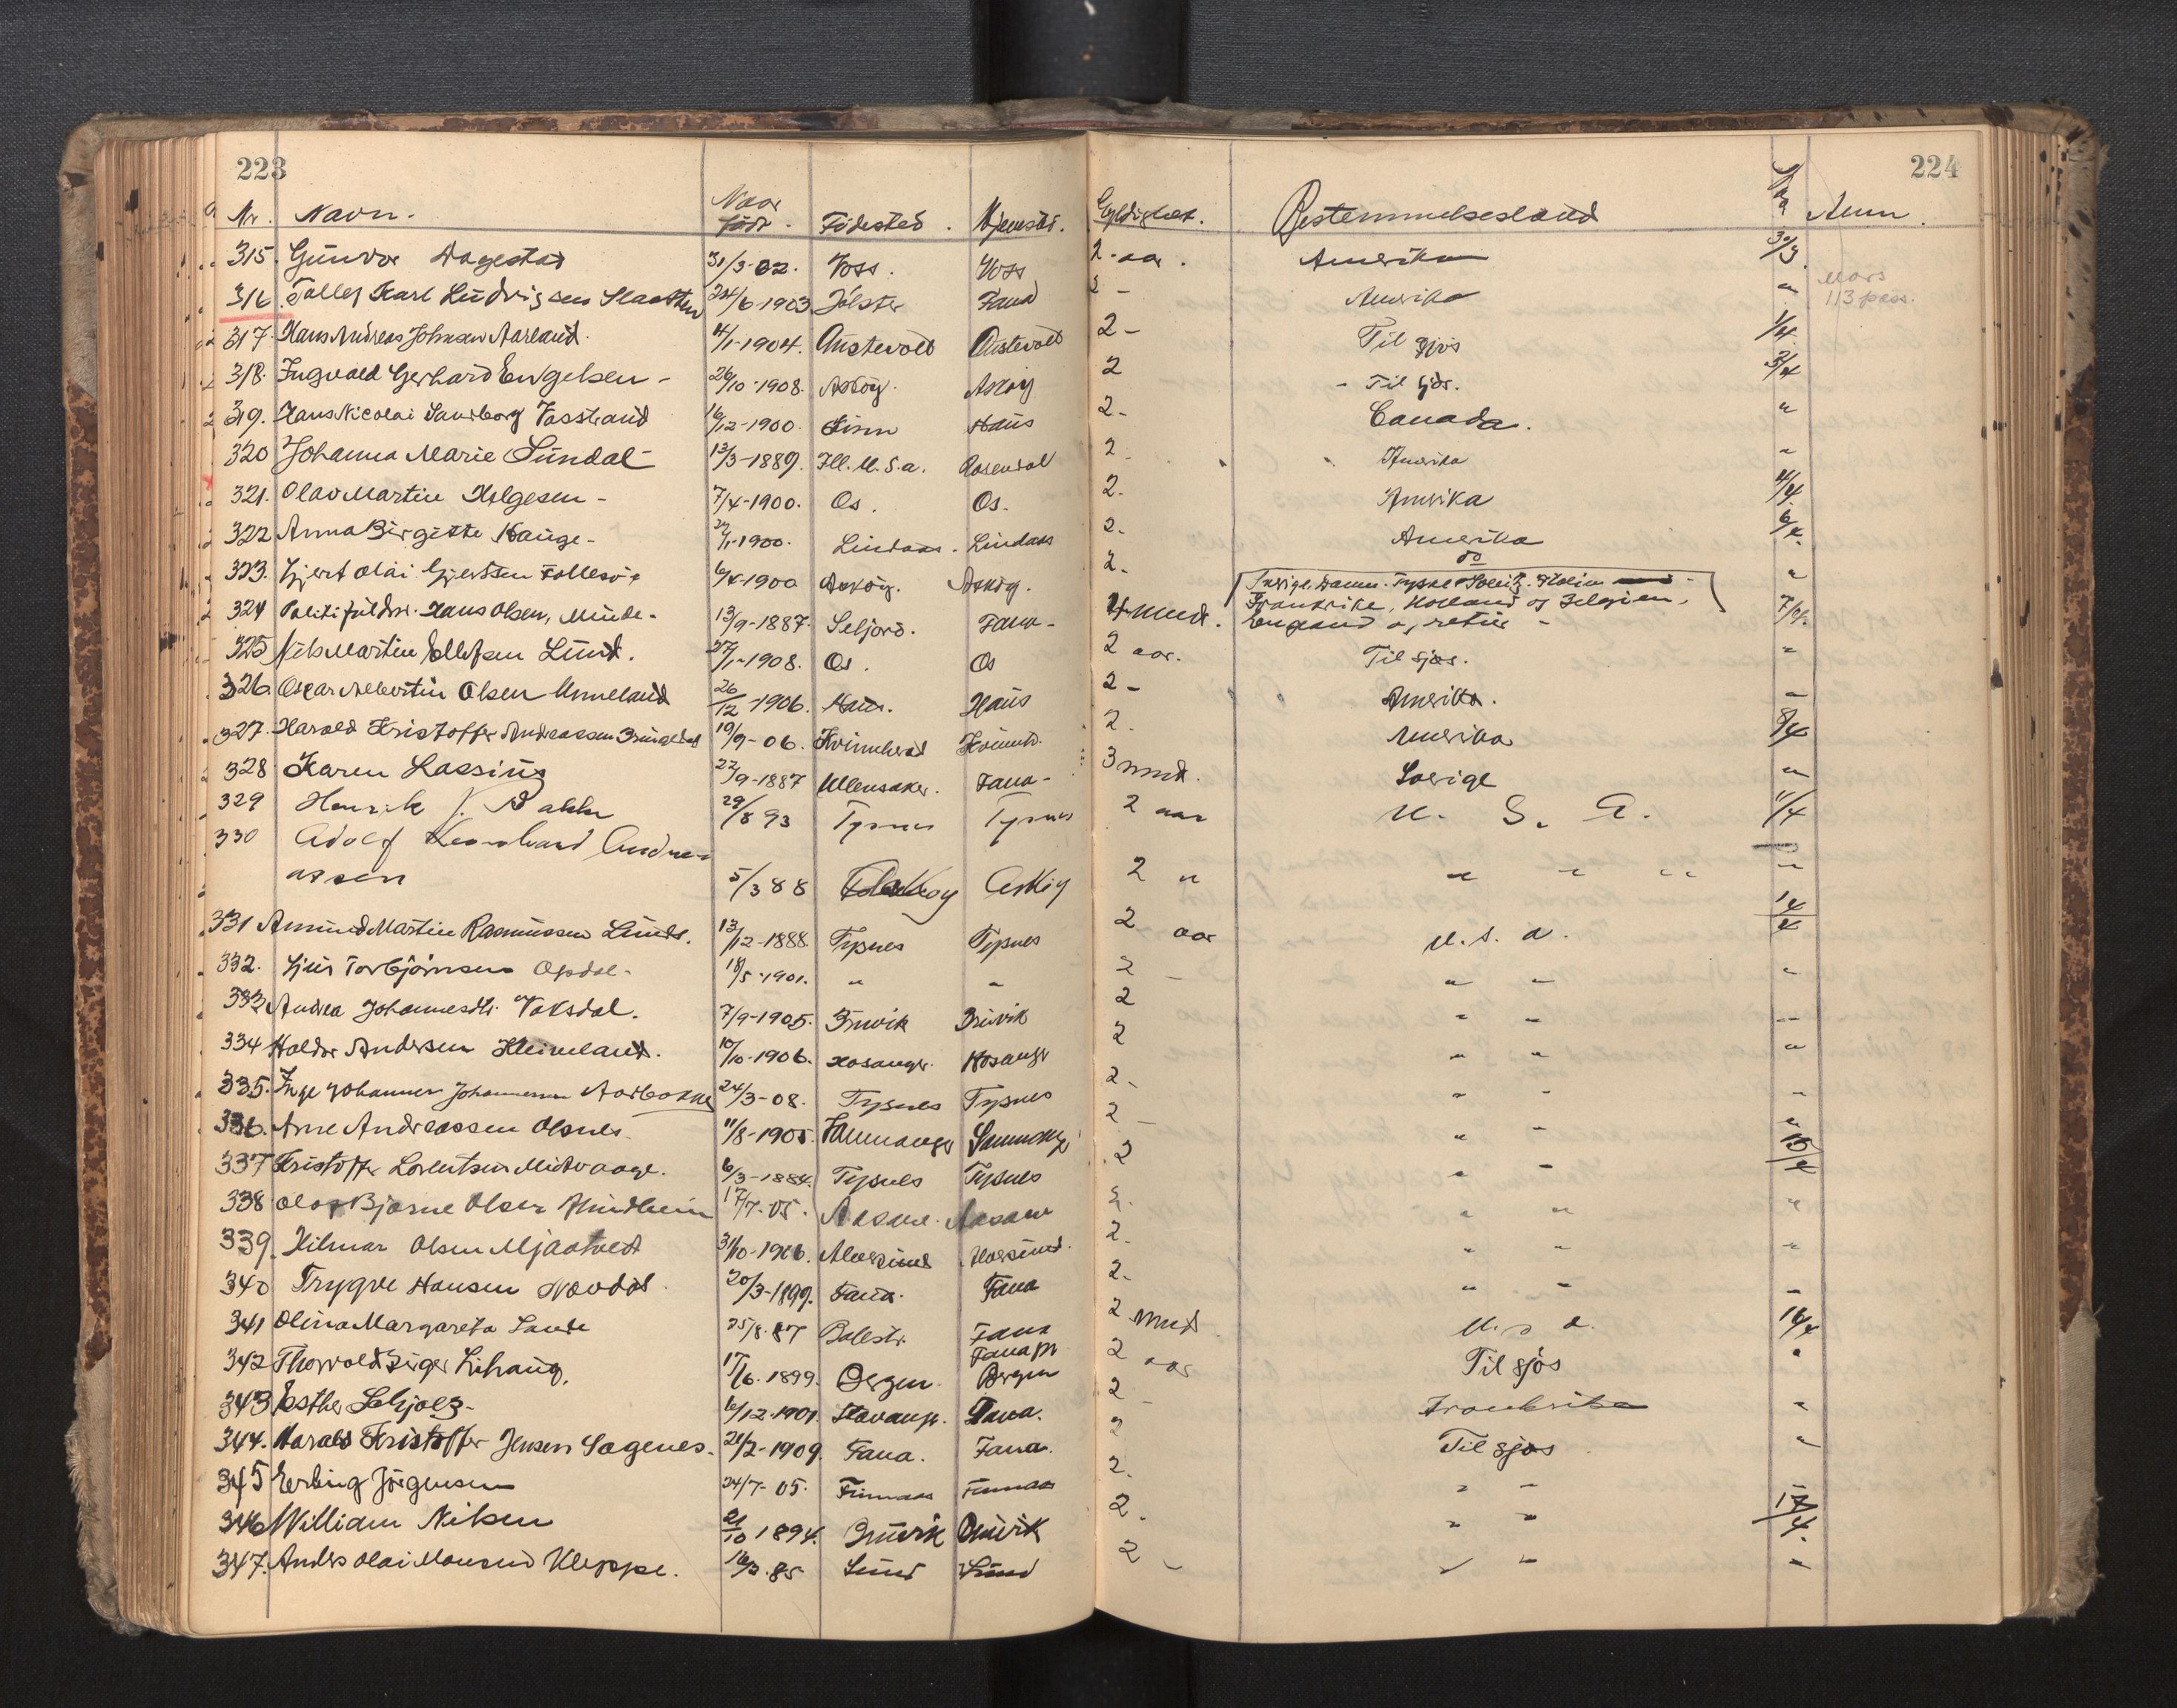 223
224
Nr. Navn. Naar født. Födested. Hjemsted. Gyldighet. Bestemmelsesland Anm.
315 Gunvor Dagestad 31/3-02. Voss. Voss 2 aar. Amerika 30/3
316 Tollef Karl Ludvigsen Slaatten 24/6-1903 Jölster Fana 2 - Amerika " Mars 113 pass.
317. Hans Andreas Johnsen Aarland. 4/1-1904. Austevold Austevold 2 - Til sjös 1/4
318. Ingvald Gerhard Engelsen - 26/10-1908. Asköy. Asköy 2 - Til sjös. 3/4
319. Hans Nicolai Vasstrand 16/12-1900. Haus 2- Canada. "
320 Johanna Marie Sundal 13/3-1889. Ill. U.S.a. Rosendal 2. Amerika "
321. Olav Martin Helgesen - 7/4-1900. Os. Os. 2. Amerika 4/4
322 Anna Birgitte Hauge - 1900. Lindaas. Lindaas 2. Amerika 6/4
323. Gjert Olai Gjertsen Follesö 1900 Asköy. Asköy. 2. do "
324 Politifuldm. Hans Olsen, Minde - 13/9-1887. Seljord. Fana - 4 mnd. Sverige, Danm. Tyskl.
Frankrike, Holland og Belgien, 7/4.
England og retur -
325 Nils Martin Ellefsen Lund. 27/1-1908. Os. Os 2 aar. Til sjøs. "
326. Oscar Albertin Olsen Unneland 26/12-1906. Haus. Haus 2 - Amerika. "
327. Harald Kristoffer Andreassen 19/9-06. Kvinnherad Kvinnh. 2. Amerika 8/4
328 Karen Lassing 22/9-1887 Ullensaker. Fana - 3 mnd. Sverige "
329 Henrik J. Bakke 29/8 93 Tysnes Tysnes 2 aar U. S. A. 11/4
330 Adolf Leonhard Andre-
assen 5/3 88 Askøy 2 " " " " "
331 Amund Martin Rasmussen Lunde. 13/12-1888. Tysnes Tysnes 2 aar U.S.a. 14/4
332. Torbjörnsen Opdal - 18/5-1901. " " 2 - " " "
333 Andrea Johannesdtr. Vaksdal. 7/9-1905. Bruvik Bruvik 2 " " "
334 Haldor Andersen Kleiveland. 10/10-1906. Hosanger. Hosangr 2 " " "
335. Inge Johannes Johannessen 24/3-08. Tysnes Tysnes 2 - " " "
336. Arne Andreassen Olsnes 11/8-1905. 2 - " " "
337 Kristoffer Lorentsen Midtvaage. 6/3-1884. Tysnes Tysnes 2 " " 15/4
338 Olaf Bjarne Olsen 17/7-05. 2. " " "
339. Hilmar Olsen Mjaatvedt 2. " " "
340 Trygve Hansen 20/3-1899. Fana. Fana 2. " " "
341 Olina Margareta Lunde 25/8.87 Balestr. Fana 2 mnd U.s a. 16/4
342 Thorvald Birger Lihaug. 17/6.1899. Bergen Fana pr Bergen 2 aar Til sjös "
343 Esther Schjolz - 6/12-1901. Stavanger. Fana. 2 - Frankrike "
344. Harald Kristoffer Jensen Sagenes. 21/2-1909. Fana. Fana. 2 Til sjøs "
345 Erling Jörgensen 24/7-05. Finnaas Finnaas 2. " "
346 William Nilsen 21/10 1894. Bruvik Bruvik 2. " " 17/4.
347. Anders Olai Monsen Kleppe. 85 Sund Sund 2 - " " "